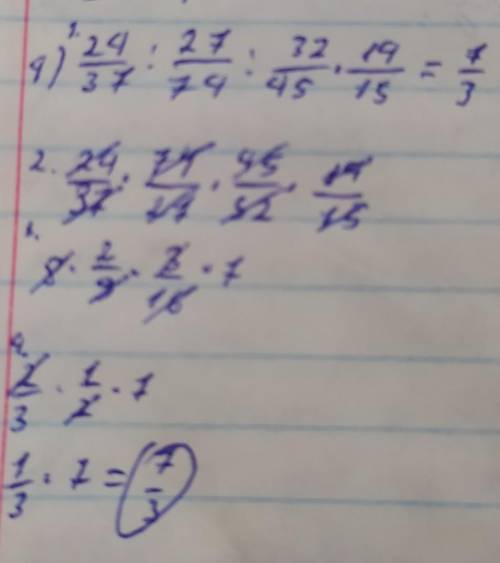 1.
4) 24/37 : 27/74 : 32/45 · 14/15 = 7/3
2. 24/37 · 74/27 · 45/32 · 14/15
3.
8 · 2/9 · 3/16 · 7
4.
2/3 · 1/2 · 7
1/3 · 7 = 7/3